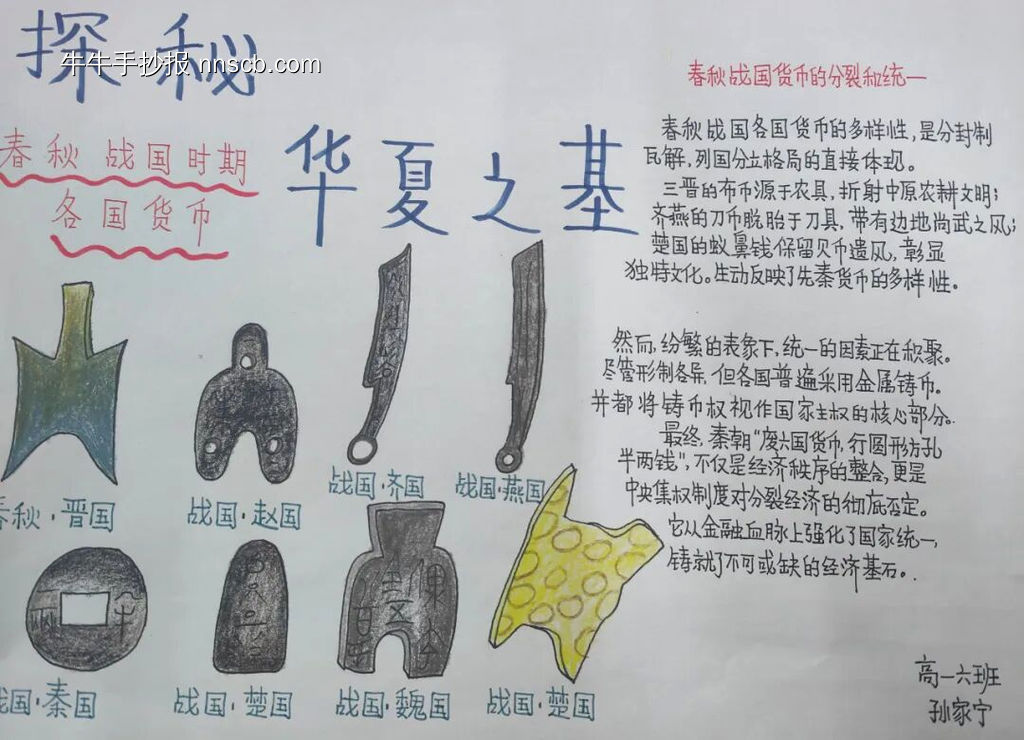 探秘
牛牛手抄报 nnscb.com
华夏之基
春秋战国时期
各国货币
春秋·晋国
战国·赵国
战国·齐国
战国·燕国
战国·秦国
战国·楚国
战国·魏国
战国·楚国
春秋战国货币的分裂和统一
春秋战国各国货币的多样性,是分封制
瓦解,列国分立格局的直接体现。
三晋的布币源于农具,折射中原农耕文明;
齐燕的刀币脱胎于刀具,带有边地尚武之风;
楚国的蚁鼻钱保留贝币遗风,彰显
独特文化。生动反映了先秦货币的多样性。
然而,纷繁的表象下,统一的因素正在积聚。
尽管形制各异,但各国普遍采用金属铸币。
并都将铸币权视作国家主权的核心部分。
最终,秦朝“废六国货币,行圆形方孔
半两钱”,不仅是经济秩序的整合,更是
中央集权制度对分裂经济的彻底否定。
它从金融血脉上强化了国家统一,
铸就了不可或缺的经济基石。
高一六班
孙家宁